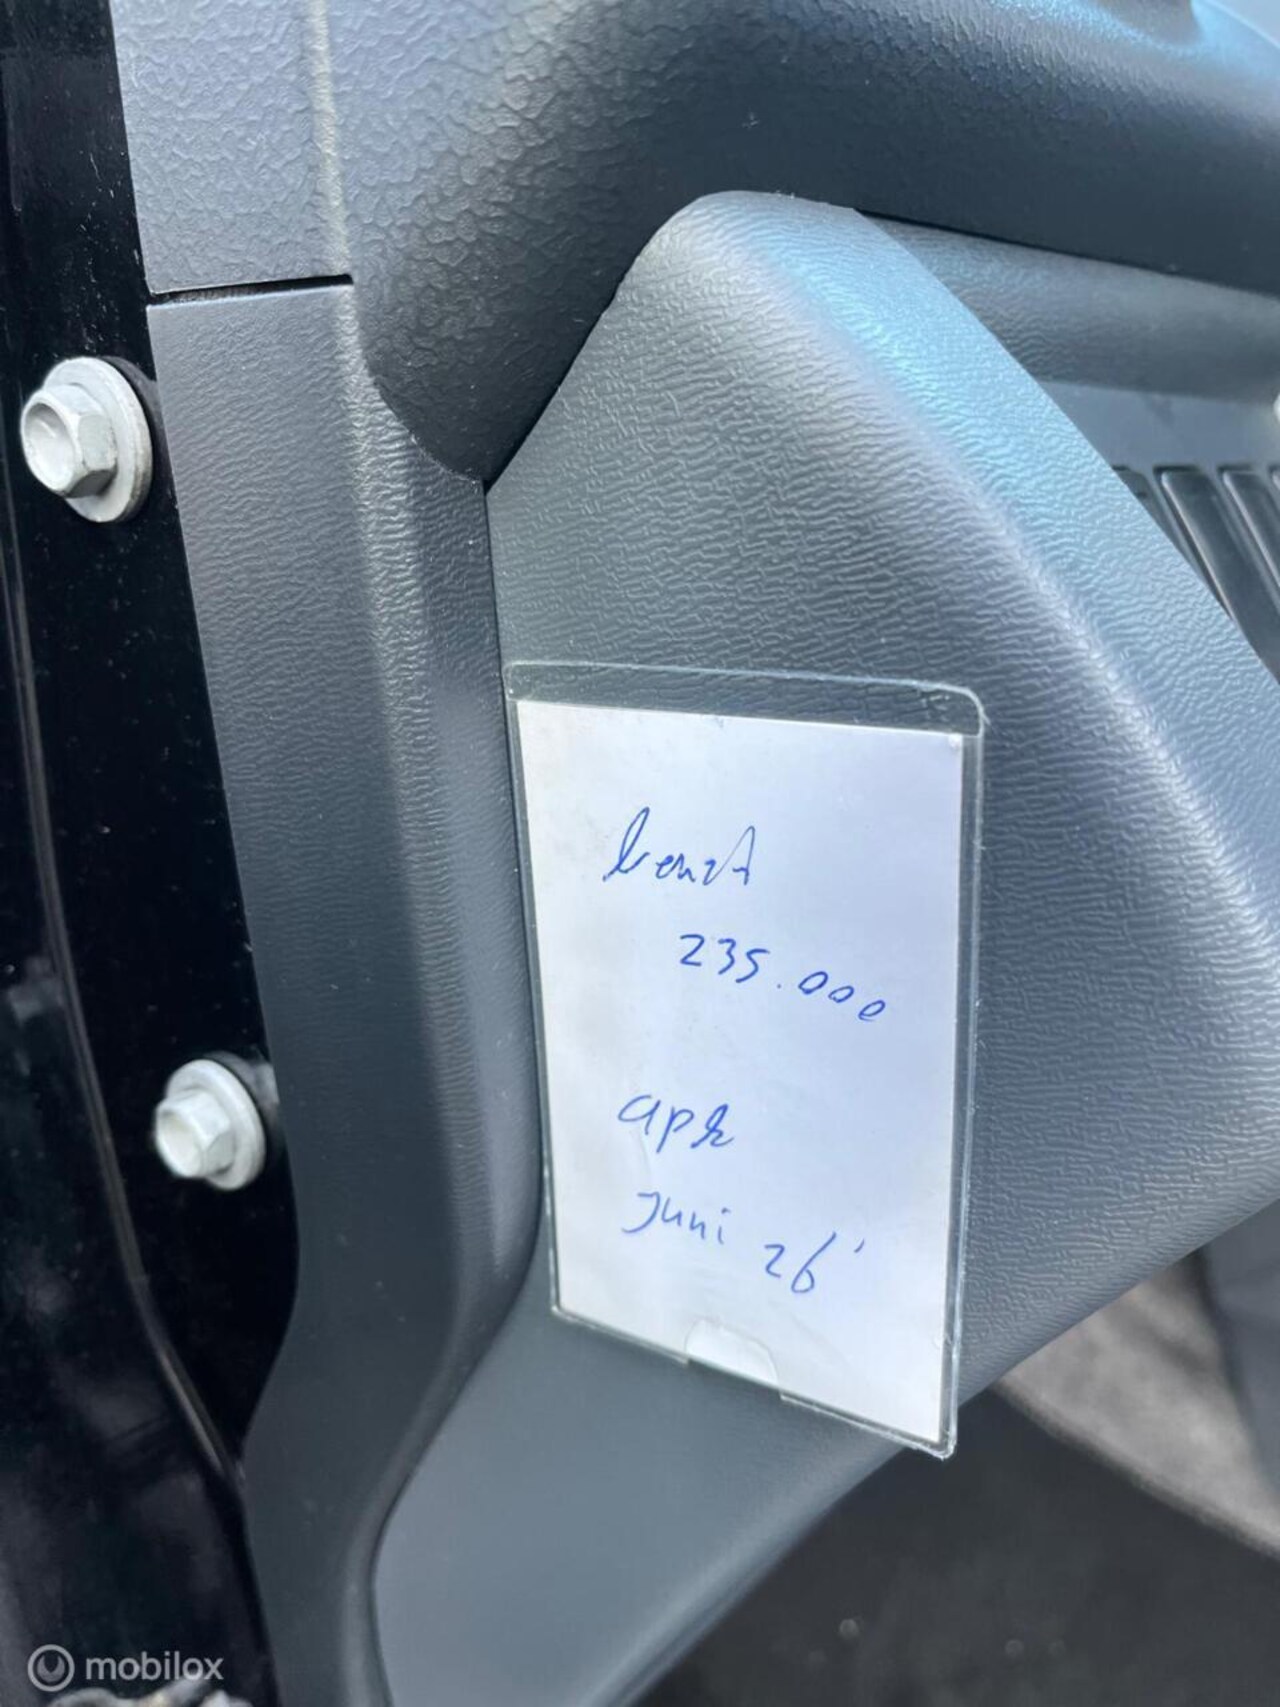 235.000
apk
juni 26'
mobilox